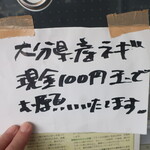 大分県産ネギ
現金100円玉で
お願いいたします。